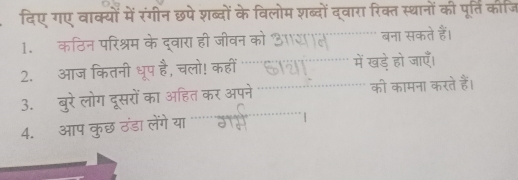 दिए गए वाक्यों में रंगीन छपे शब्दों के विलोम शब्दों द्वारा रिक्त स्थानों की पूर्ति कीजि
1. कठिन परिश्रम के द्वारा ही जीवन को आसान बना सकते हैं।
2. आज कितनी धूप है, चलो! कहीं छाया में खड़े हो जाएँ।
3. बुरे लोग दूसरों का अहित कर अपने .................... की कामना करते हैं।
4. आप कुछ ठंडा लेंगे या गर्म ।